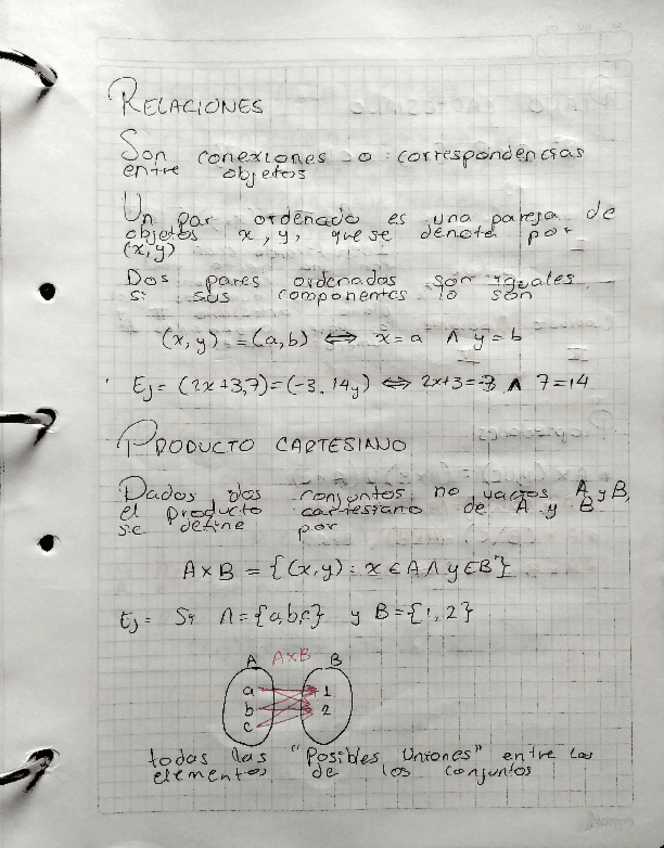 RELACIONES
Son conexiones o correspondencias
entre objetos
Un par ordenado es una pareja de
objetos x, y, que se denota por
(x,y)
Dos pares ordenados son iguales
si sus componentes lo son
(x,y) = (a,b) ⟺ x = a ∧ y = b
Ej = (2x+3,7)=(-3, 14y) ⟺ 2x+3=-3 ∧ 7=14
PRODUCTO CARTESIANO
Dados dos conjuntos no vacios A y B,
el producto cartesiano de A y B
se define por
A×B = {(x,y): x ∈ A ∧ y ∈ B}
Ej = Si A={a,b,c} y B={1,2}
A A×B B
a 1
b 2
c
todas las "Posibles Uniones" entre los
elementos de los conjuntos